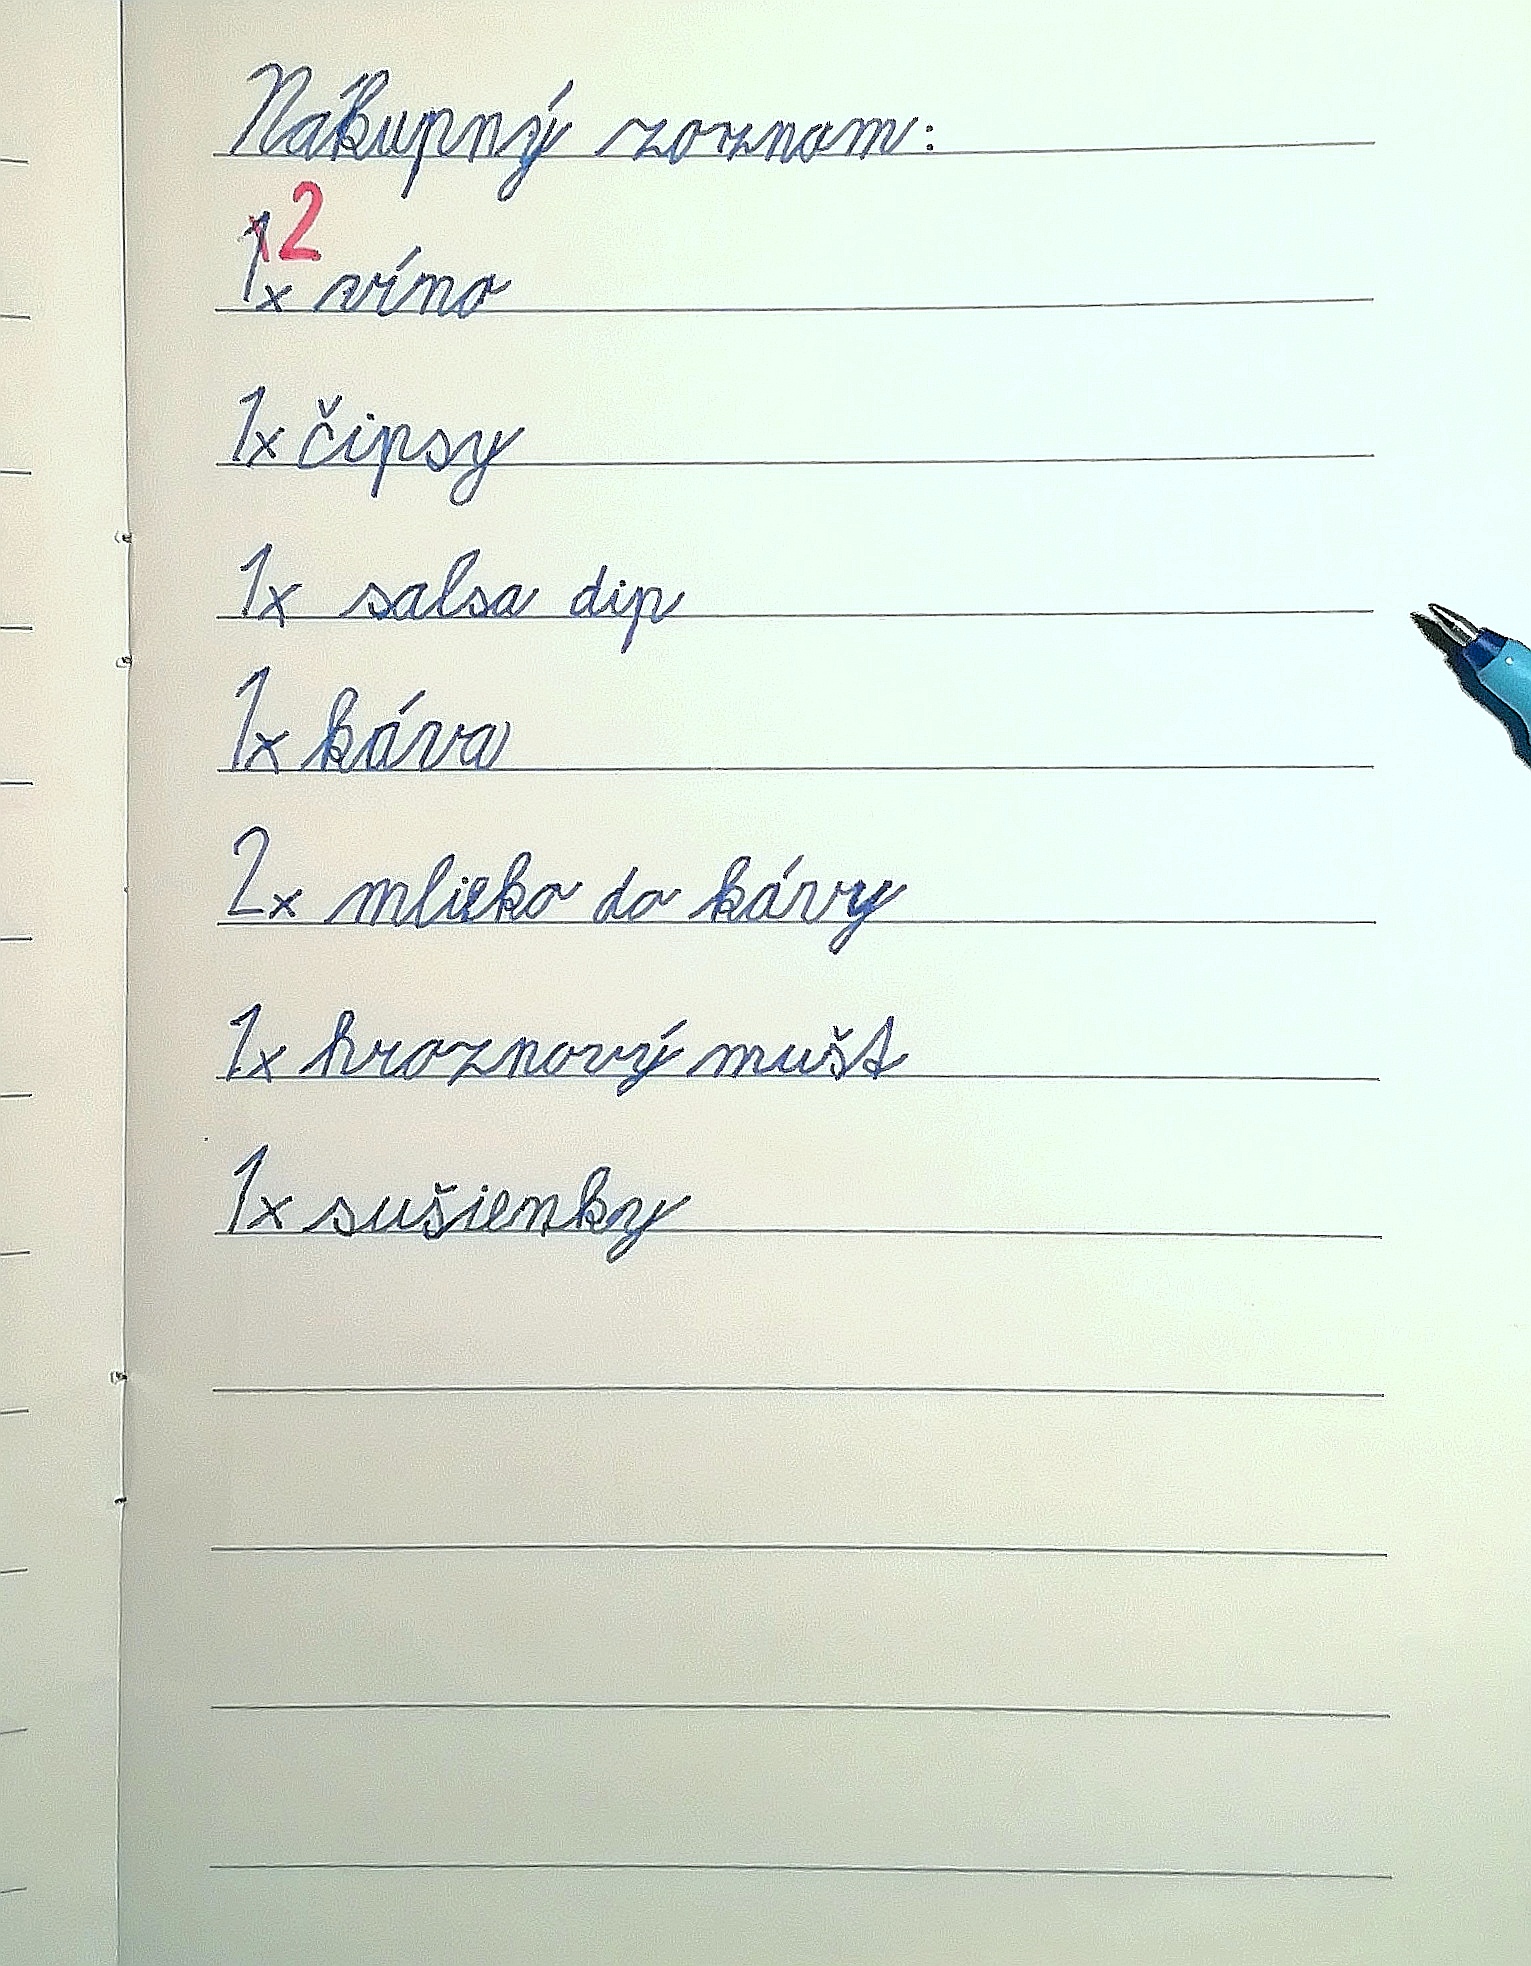 Nákupný zoznam:
2
1x víno
1x čipsy
1x salsa dip
1x káva
2x mlieko do kávy
1x hroznový mušt
1x sušienky